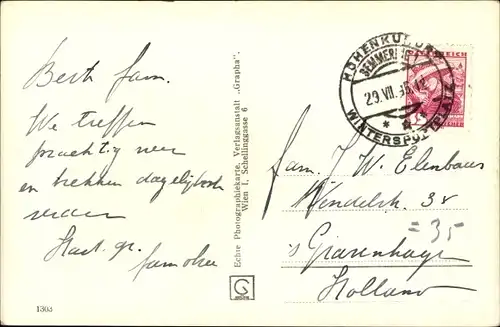 Beste Fam.
We treffen
prachtig weer
en trekken dagelijks
verder
Hart. gr.
Echte Photographiekarte. Verlagsanstalt „Grapha“.
Wien I, Schellinggasse 6
G
1303
HÖHENKURORT
SEMMERING
29.VII.36.12
* *
WINTERSPORTPLATZ
Fam. J. W. Elenbaas
Wendelstr. 38
= 35
's Gravenhage
Holland